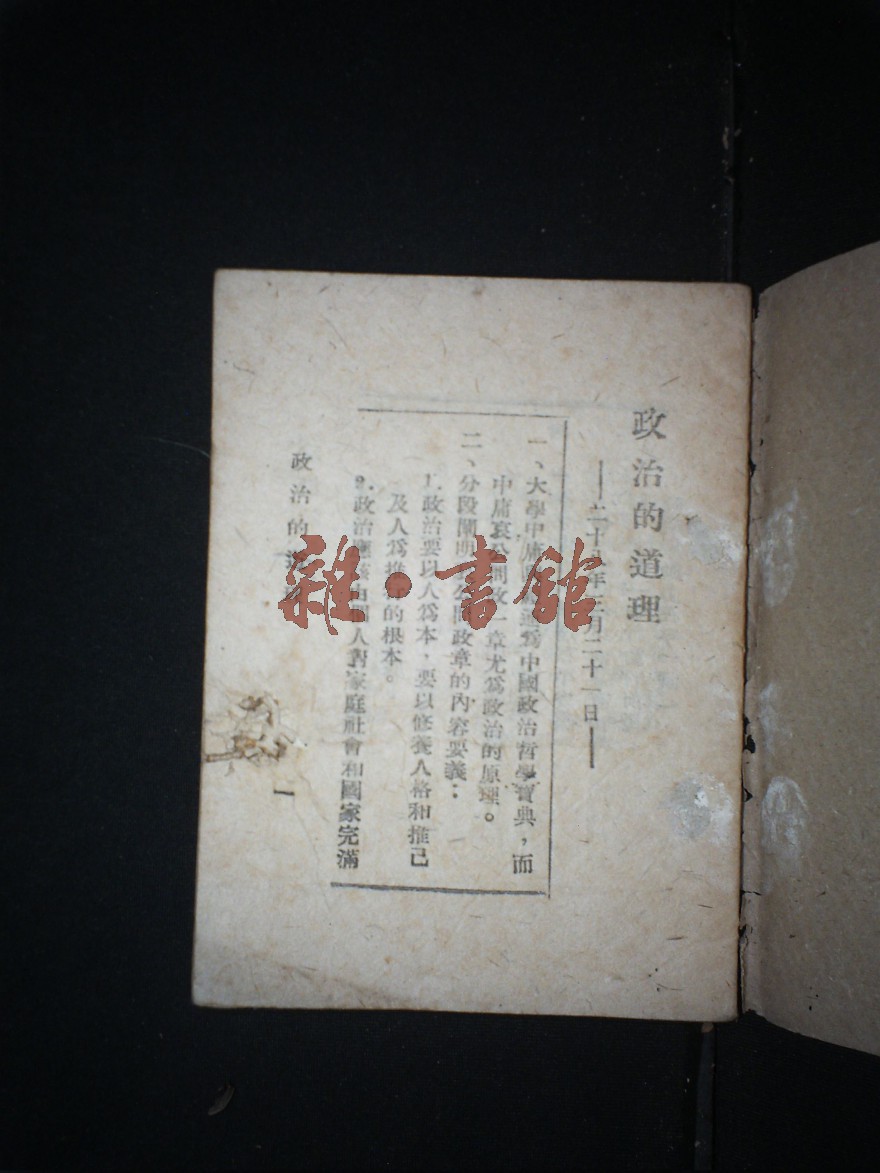 政治的道理
——二十八年 月二十一日——
一、大學中庸 爲中國政治哲學寶典，而
中庸哀公問政一章尤爲政治的原理。
二、分段闡明哀公問政章的內容要義：
1.政治要以人爲本，要以修養人格和推己
及人爲推 的根本。
2.政治應該由個人對家庭社會和國家完滿
政治的道理
一
雜·書館